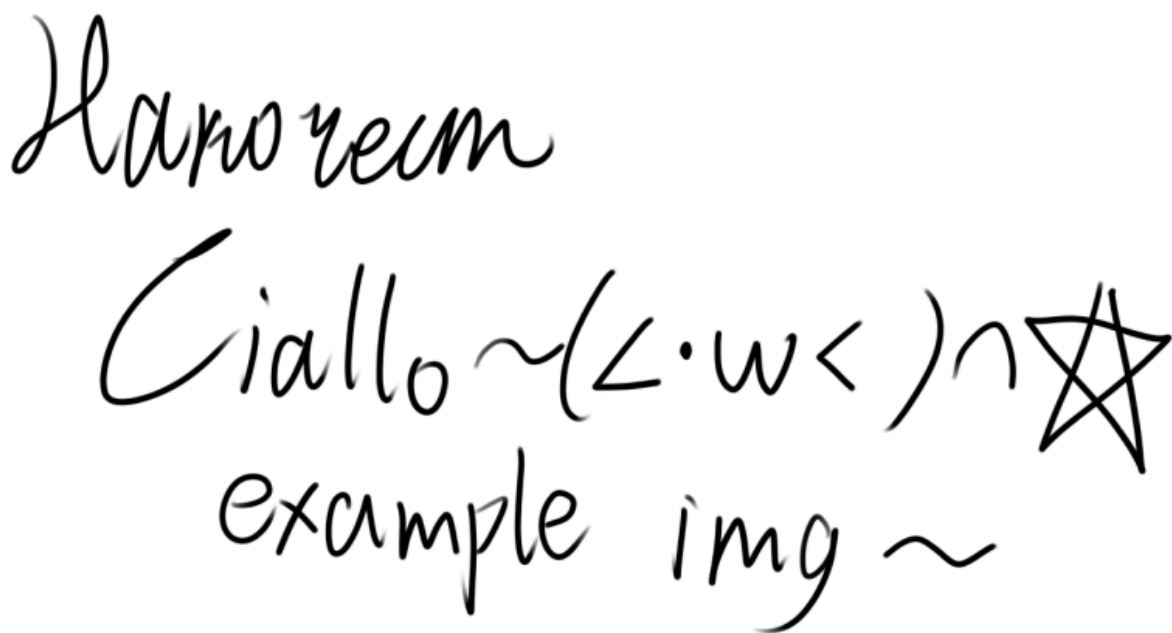 Hanorecm
Ciallo~(∠·w<)∩☆
example img~